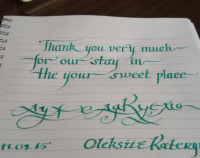 Thank you very much
for our stay in
the your sweet place
11.09.15 Oleksii & Katery